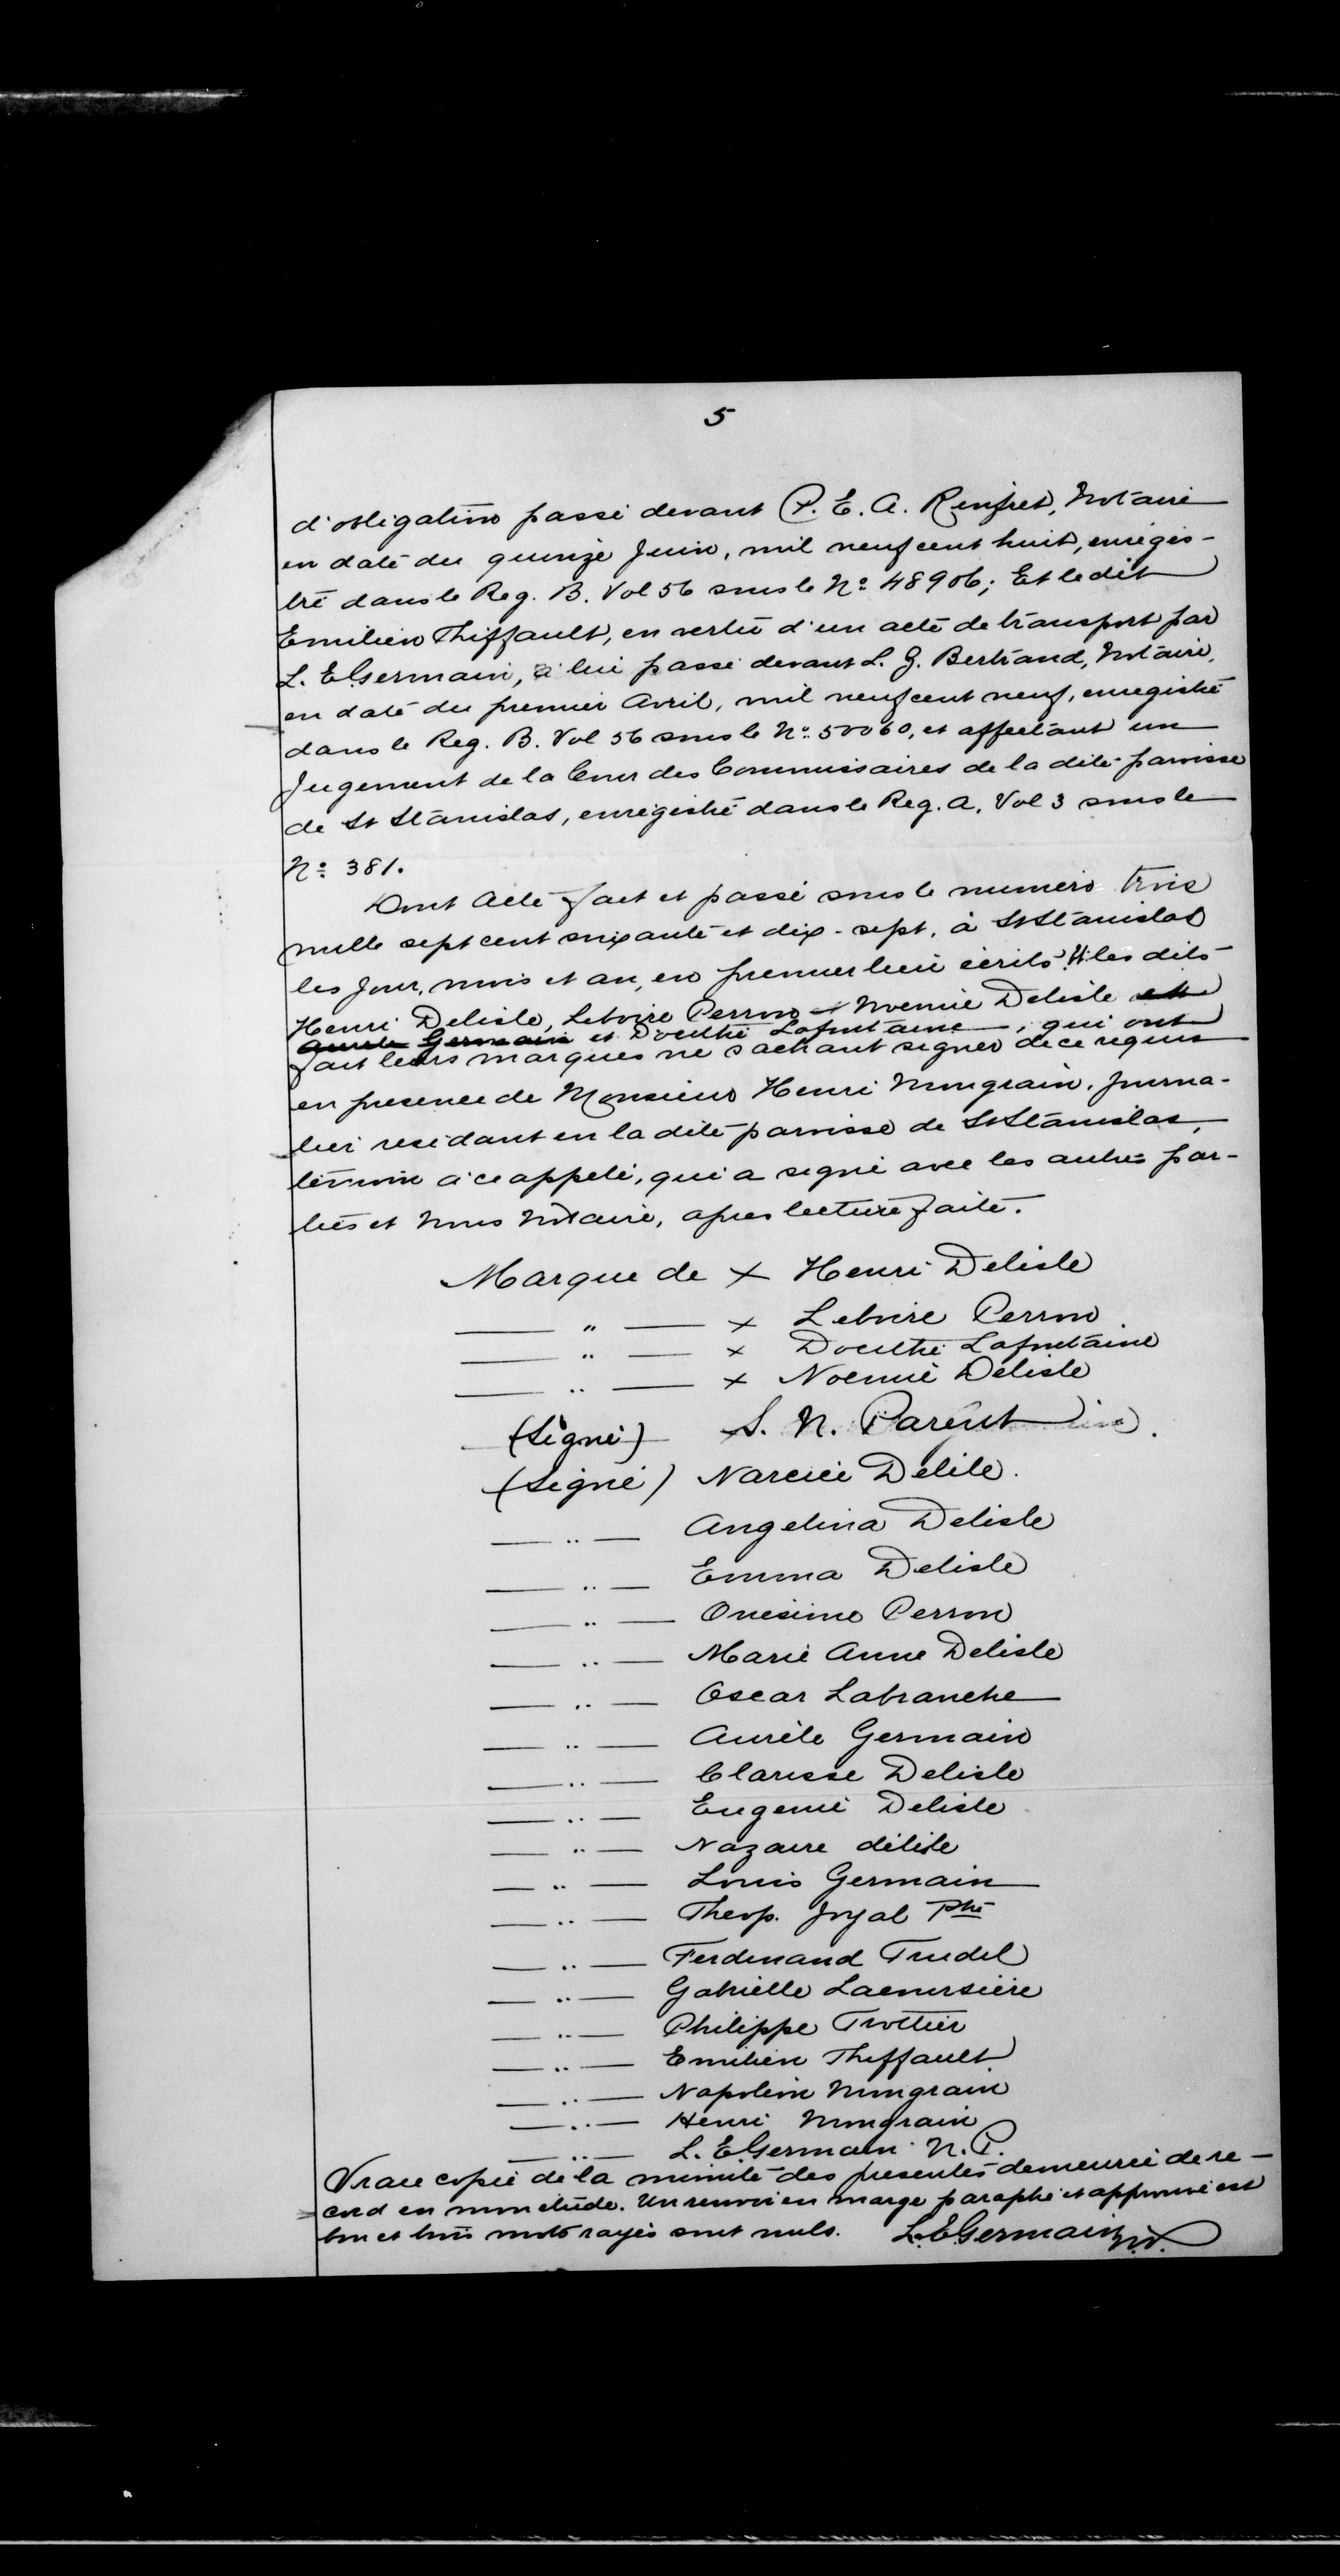 5
d'obligation passé devant P. E. A. Renfret, Notaire
en date du quinze Juin, mil neuf cent huit, enrégis-
tré dans le Reg. B. Vol 56 sous le No 48906; Et le dit
Emilien Thiffault, en vertu d'un acte de transport par
L. E. Germain, à lui passé devant L. G. Bertrand, Notaire,
en date du premier Avril, mil neuf cent neuf, enregistré
dans le Reg. B. Vol 56 sous le No 50060, et affectant un
Jugement de la Cour des Commissaires de la dite paroisse
de St Stanislas, enregistré dans le Reg. A. Vol 3 sous le
No 381.
Dont Acte fait et passé sous le numéro trois
mille sept cent soixante et dix-sept, à St Stanislas
les Jour, mois et an, en premier lieu écrits. les dits
Henri Delisle, Letoire Perron Noemie Delisle et
Aurele Germain et Dorithé Lafontaine, qui ont
fait leurs marques ne sachant signer de ce requis
en presence de Monsieur Henri Mongrain, Journa-
lier residant en la dite paroisse de St Stanislas,
témoin à ce appelé, qui a signé avec les autres par-
ties et Nous Notaire, apres lecture faite.
Marque de x Henri Delisle
— " — x Letoire Perron
— " — x Dorithé Lafontaine
— " — x Noemie Delisle
(Signé) S. N. Parent
(Signé) Narcice Delile.
— " — Angelina Delisle
— " — Emma Delisle
— " — Onesime Perron
— " — Marie Anne Delisle
— " — Oscar Labranche
— " — Aurèle Germain
— " — Clarisse Delisle
— " — Eugenie Delisle
— " — Nazaire délisle
— " — Louis Germain
— " — Theop. Joyal Ptre
— " — Ferdinand Trudel
— " — Gabrielle Lacoursière
— " — Philippe Trottier
— " — Emilien Thiffault
— " — Napoléon Mongrain
— " — Henri Mongrain
— " — L. E. Germain N. P.
Vraie copie de la minute des presentes demeurée de re-
cord en mon étude. Un renvoi en marge paraphé et approuvé est
bon et trois mots rayés sont nuls. L. E. Germain N.P.